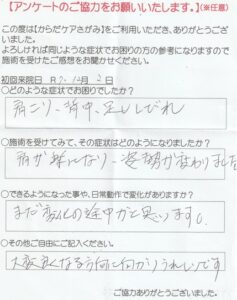 【アンケートのご協力をお願いいたします。】(※任意)
この度は【からだケアさがみ】をご利用いただき、ありがとうございました。
よろしければ同じような症状でお困りの方の参考になりますので
施術を受けたご感想をお聞かせください。
初回来院日 R7.12月2日
○どのような症状でお困りでしたか?
肩こり、背中、足しびれ
○施術を受けてみて、その症状はどのようになりましたか?
肩が楽になり、姿勢が変わりました
○できるようになった事や、日常動作で変化がありますか?
まだ変化の途中かと思います。
○その他ご自由にご記入ください。
大変良くなる方向に向かりうれしいです
ご協力ありがとうございました。